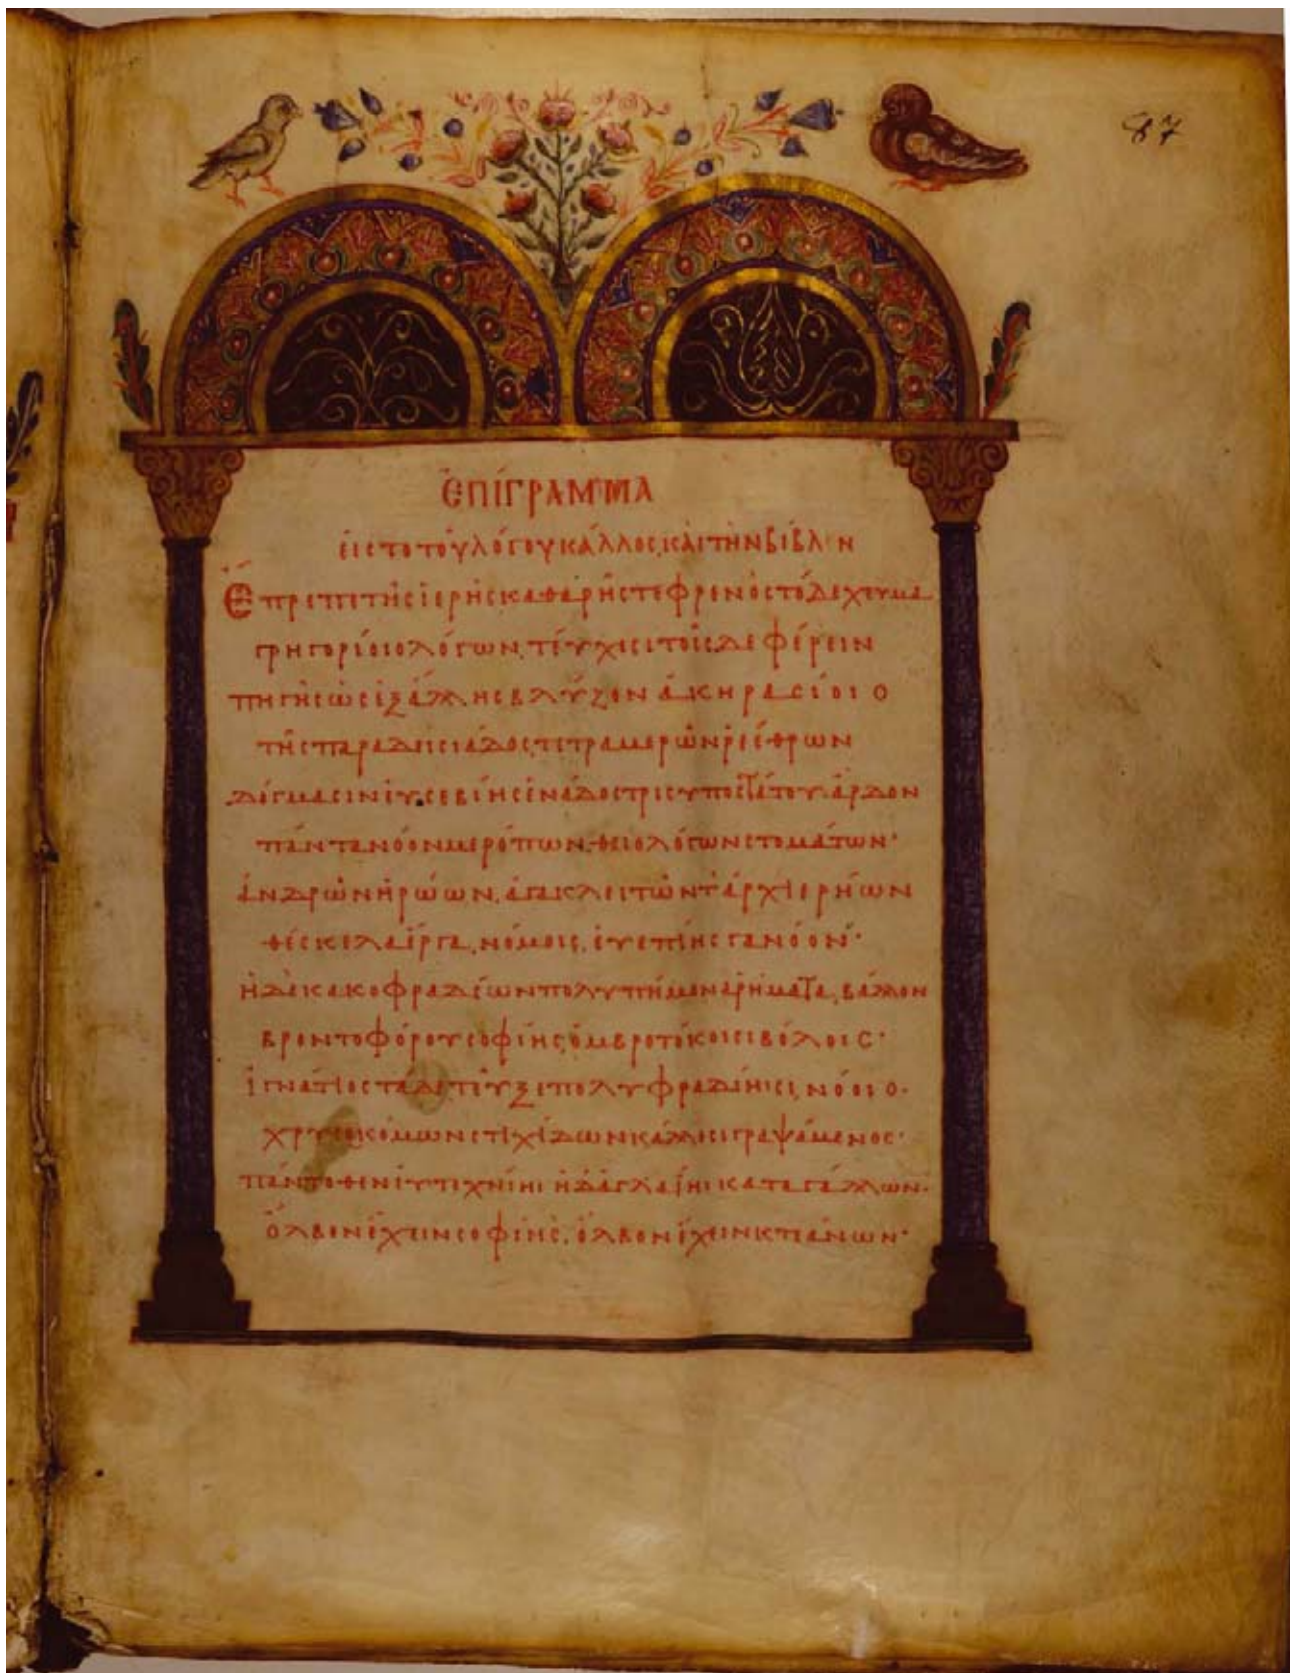 87
ἐπίγραμμα
εἰς τὸ τοῦ λόγου κάλλος, καὶ τὴν βίβλον
Ἔπρεπε τῆς ἱερῆς καθαρῆς τε φρενὸς τόδε χεῦμα
γρηγορίοιο λόγων, τεύχεσι τοῖσδε φέρειν
πηγῆς ὡς ἐξ ἄλλης βλύζον ἀκηρασίοιο
τῆς παραδεισιάδος, τετραμερῶν ῥεέθρων
δόγμασιν εὐσεβίης ἑνάδος τρισυποστάτου ἄρδον
πάντα νόον μερόπων, θειολόγων στομάτων·
ἀνδρῶν ἡρώων, ἀγακλειτῶν τ' ἀρχιερήων
θέσκελα ἔργα, νόμοις, εὐεπίης γανόον·
ἠδὲ κακοφραδέων πολυπήμονα ῥήματα, βάλλον
βροντοφόρου σοφίης, ὀμβροτόκοισι βόλοις·
ἰγνάτιος τάδ' ἔτευξε πολυφραδίηισι νόοιο·
χρυσοκόμων στιχίδων κάλλεϊ γραψάμενος·
πάντοθεν εὐτεχνίηι ἠδ' ἀγλαΐηι καταγάλλων·
ὄλβον ἔχειν σοφίης, ὄλβον ἔχειν κτεάνων·